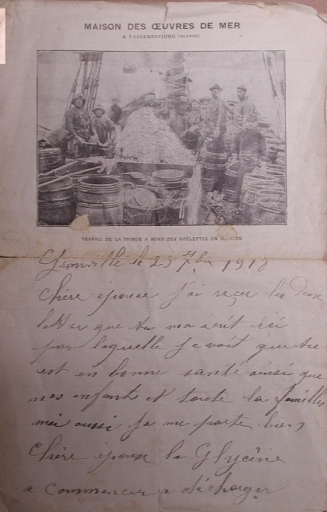 MAISON DES ŒUVRES DE MER
A FASKRUDSFJORD (ISLANDE)
TRAVAIL DE LA MORUE A BORD DES GOËLETTES EN ISLANDE
le 23 7bre 1918
Chère épouse j'ai reçu les deux
lettre que tu ma écrit
par laquelle je voit que tu
est en bonne santé ainsi que
nos enfants et toute la famille
moi aussi je me porte bien
Chère épouse la Glycine
a commencer a décharger